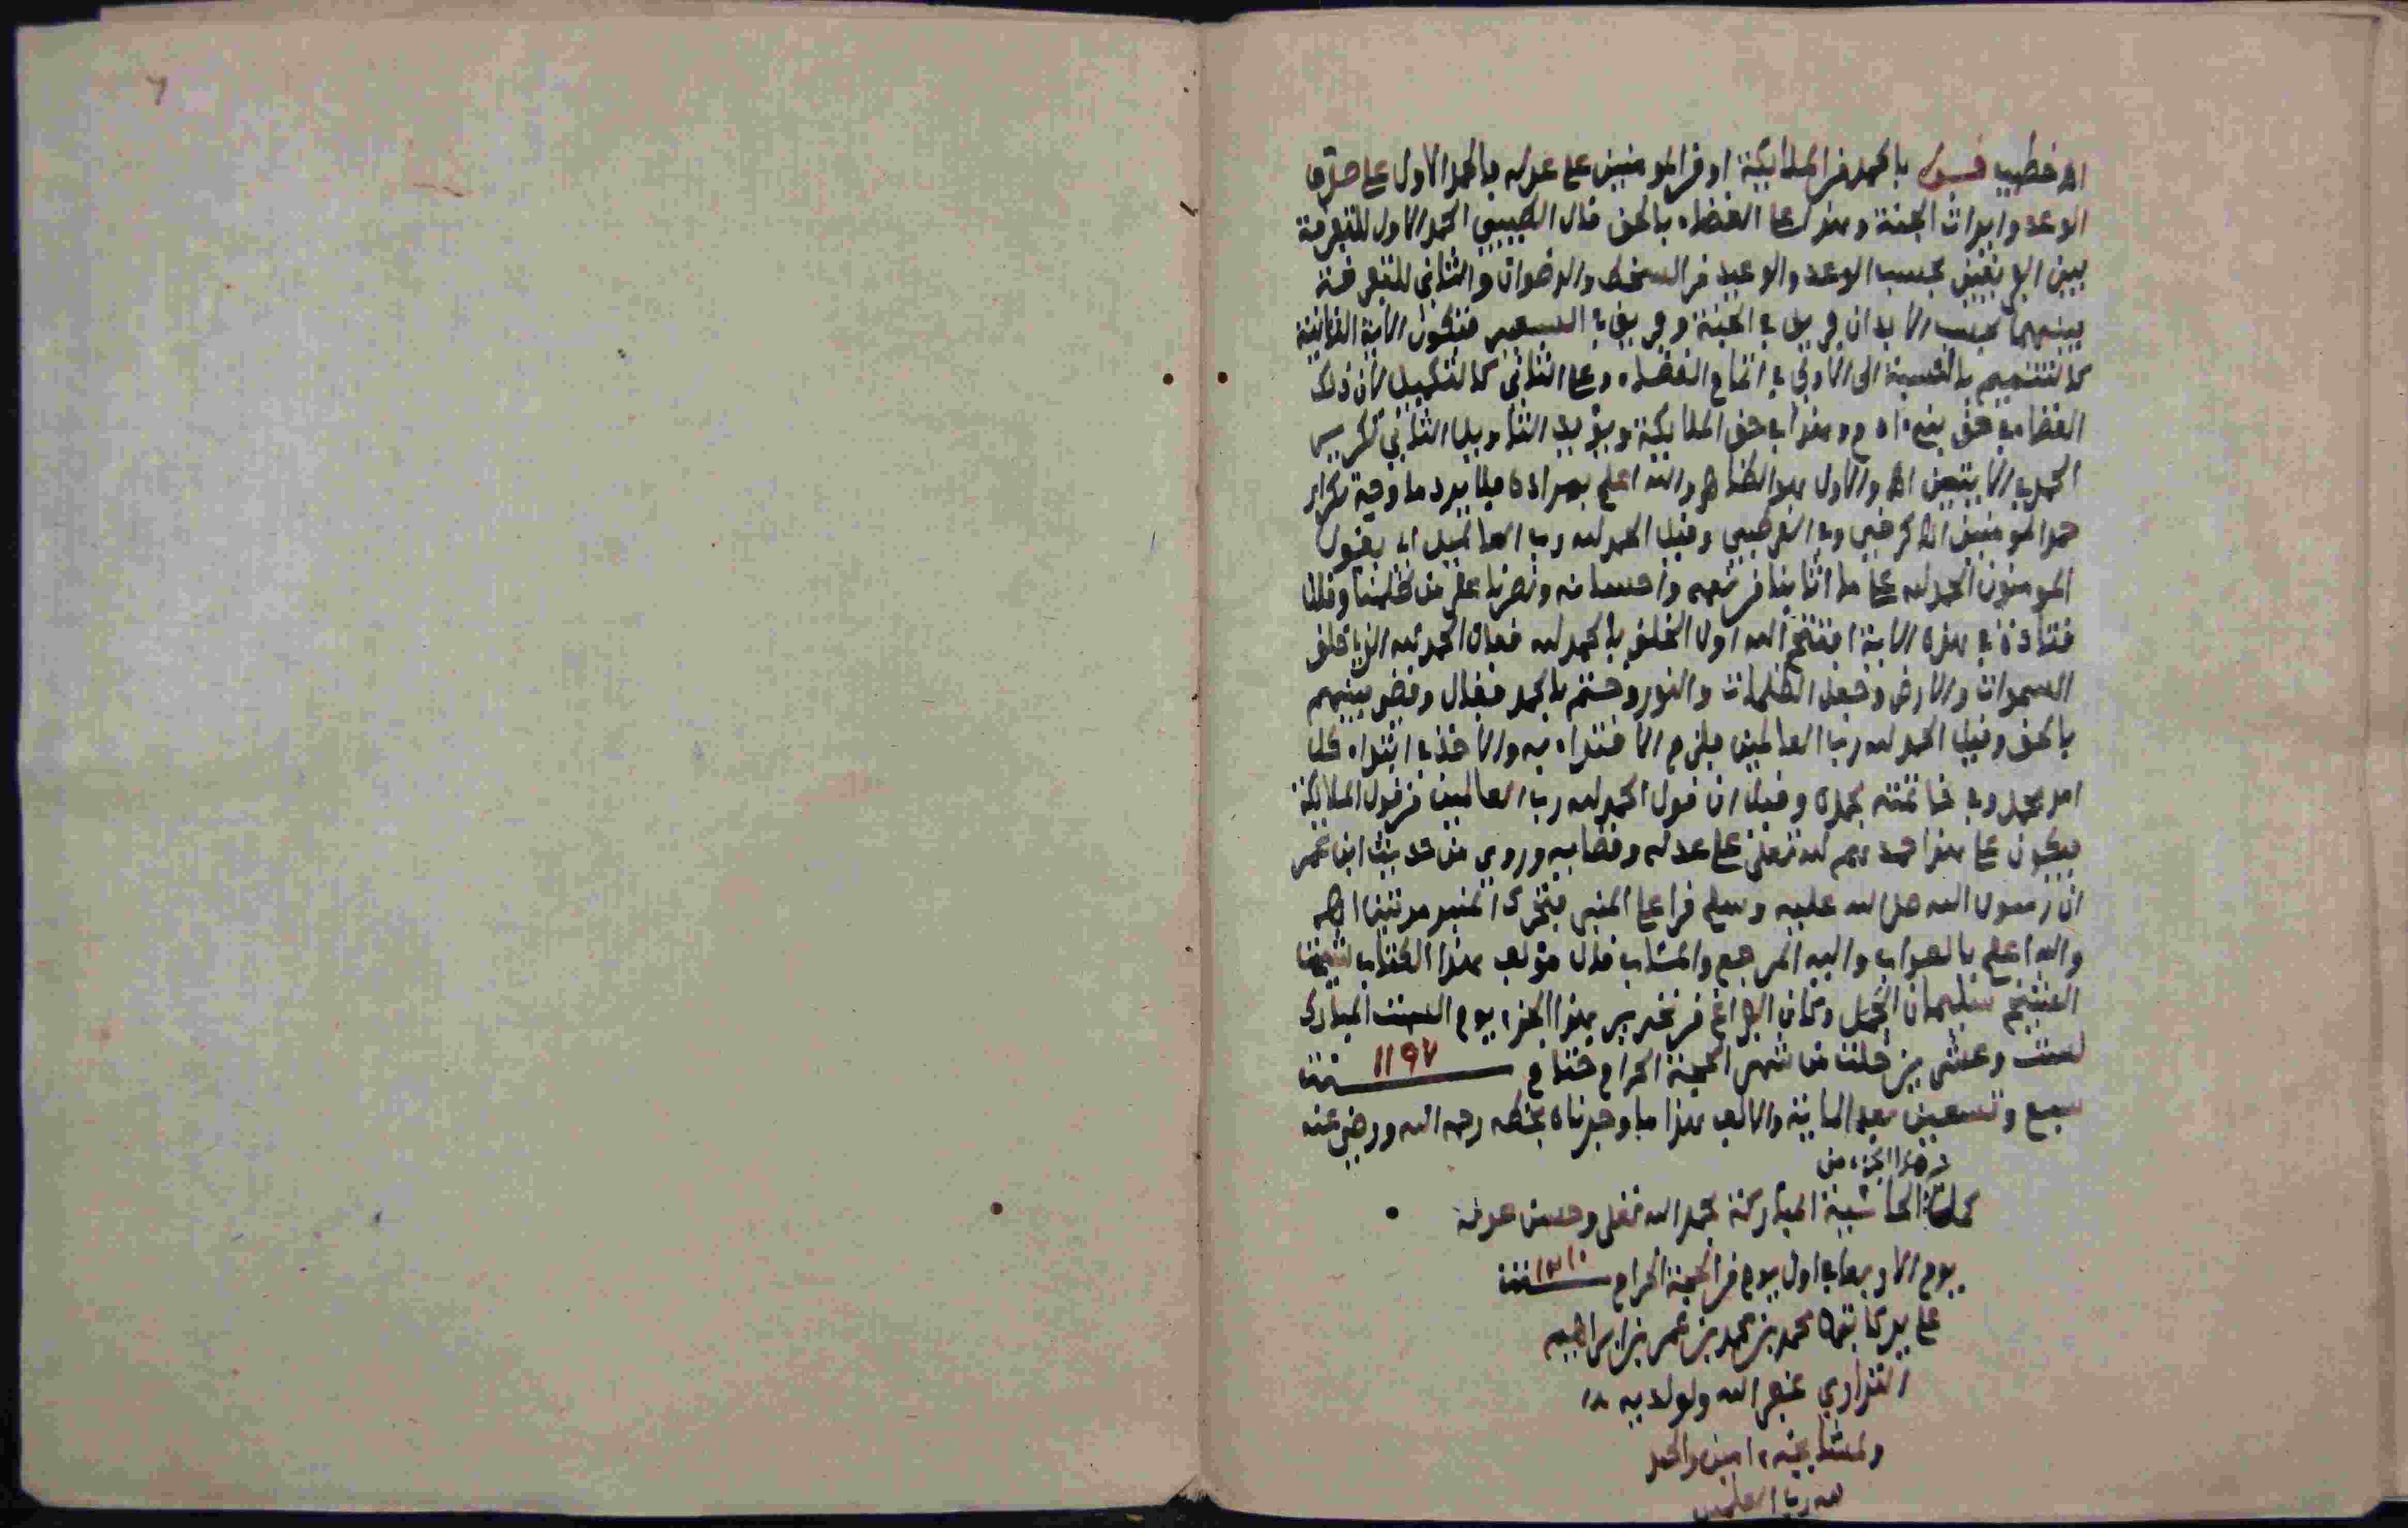 اه خطيب قوله بالحمد من الملائكة او من المومنين على عدله فالحمد الاول على صدق
الوعد وايراث الجنة وهذا على القضاء بالحق قال الطيبي الحمد الاول للتفرقة
بين الفريقين بحسب الوعد والوعيد من السخط والرضوان والثاني للتفرقة
بينهما بحسب الابدان فريق في الجنة وفريق في السعير فتكون الاية الثانية
كالتتميم بالنسبة الى الاولى في اتمام القضاء وعلى الثاني كالتكميل لان ذلك
القضاء في حق بني ءادم وهذا في حق الملايكة ويؤيد التاويل الثاني تكرير
الحمد في الايتين اه والاول هو الظاهر والله اعلم بمراده فلا يرد ما وجه تكرار
حمد المومنين اه كرخي وفي القرطبي وقيل الحمد لله رب العالمين اي يقول
المومنون الحمد لله على ما اثابنا من نعمه واحسانه ونصرنا على من ظلمنا وقال
قتادة في هذه الاية افتتح الله اول الخلق بالحمد لله فقال الحمد لله الذي خلق
السموات والارض وجعل الظلمات والنور وختم بالحمد فقال وقضي بينهم
بالحق وقيل الحمد لله رب العالمين فلزم الاقتداء به والاخذ في ابتداء كل
امر بحمده وفي خاتمته بحمده وقيل ان قول الحمد لله رب العالمين من قول الملايكة
فيكون على هذا حمدهم لله تعلى على عدله وقضايه وروي من حديث ابن عمر
ان رسول الله صلى الله عليه وسلم قرا على المنبر فتحرك المنبر مرتين اه
والله اعلم بالصواب واليه المرجع والمئاب قال مؤلف هذا الكتاب شيخنا
الشيخ سليمان الجمل وكان الفراغ من تحرير هذا الجزء يوم السبت المبارك
لست وعشرين خلت من شهر الحجة الحرام ختام سنة 1197
سبع وتسعين بعد الماية والالف هذا ما وجدناه بخطه رحمه الله ورضي عنه
هذا الجزء من
كملت الحاشية المباركة بحمد الله تعلى وحسن عونه
يوم الاربعا في اول يوم من الحجة الحرام سنة
على يد كاتبها محمد بن محمد بن عمر بن ابراهيم
غفر الله ولوالديه
ولمشايخه ءامين والحمد
لله رب العلمين